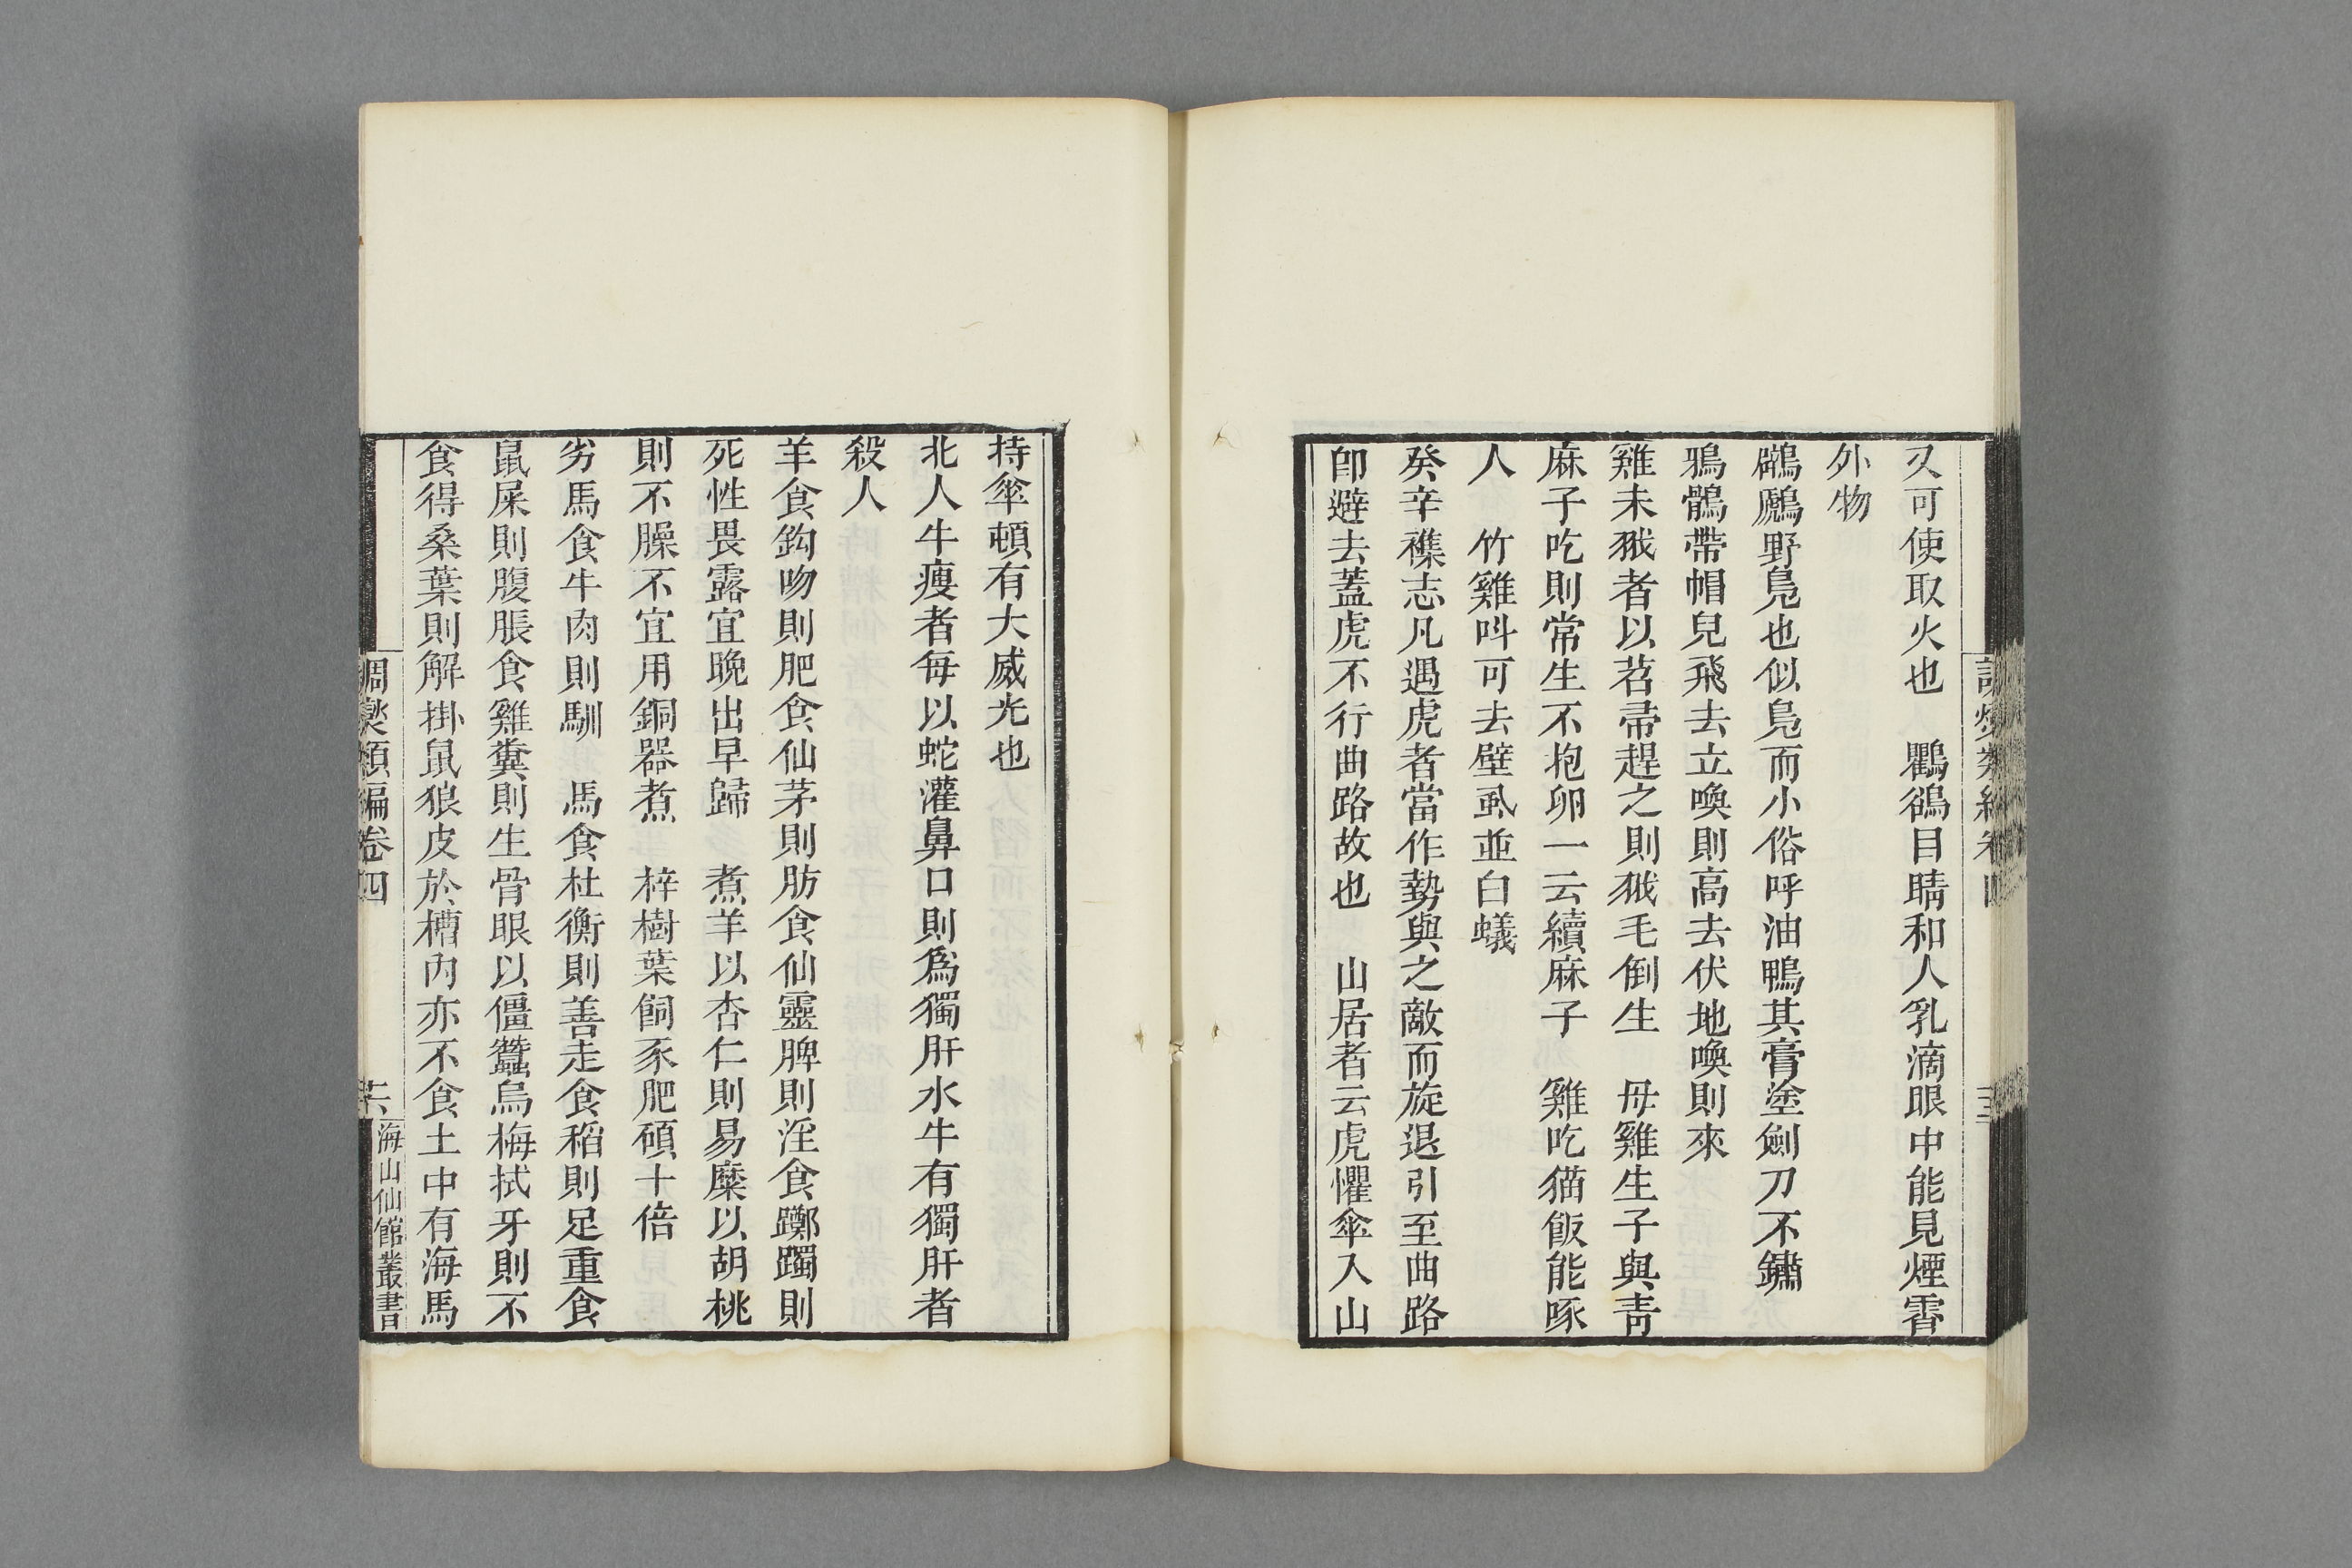 又可使取火也　鸜鵒目睛和人乳滴眼中能見煙霄
外物
鸊鷉野鳧也似鳧而小俗呼油鴨其膏塗劍刀不鏽
鴉鶻帶帽兒飛去立喚則高去伏地喚則來
雞未㹥者以苕帚趕之則㹥毛倒生　母雞生子與靑
麻子吃則常生不抱卵一云續麻子　雞吃猫飯能啄
人　竹雞叫可去壁虱並白蟻
癸辛襍志凡遇虎者當作勢與之敵而旋退引至曲路
卽避去蓋虎不行曲路故也　山居者云虎懼傘入山
持傘頓有大威光也
北人牛瘦者每以蛇灌鼻口則爲獨肝水牛有獨肝者
殺人
羊食鈎吻則肥食仙茅則肪食仙靈脾則淫食躑躅則
死性畏露宜晚出早歸　煮羊以杏仁則易糜以胡桃
則不臊不宜用銅器煮　梓樹葉飼豕肥碩十倍
劣馬食牛肉則馴　馬食杜衡則善走食稻則足重食
鼠屎則腹脹食雞糞則生骨眼以僵蠶烏梅拭牙則不
食得桑葉則解掛鼠狼皮於槽內亦不食土中有海馬
調燮類編卷四
海山仙館叢書